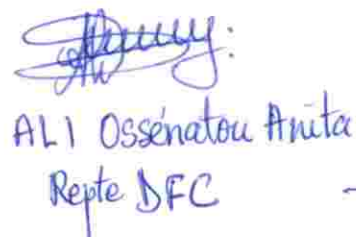 ALI Ossénatou Anita
Repte DFC